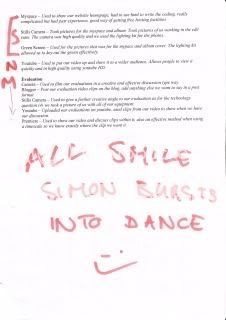 Myspace – Used to show our website homepage, had to use html to write the coding, really
complicated but had past experience, good way of getting free hosting facilities
Stills Camera – Took pictures for the myspace and album. Took pictures of us working in the edit
suite. The camera was high quality and we used the lighting kit for the photos
Green Screen – Used for the pictures that was for the myspace and album cover. The lighting kit
allowed us to key out the green effectively
Youtube – Used to put our video up and show it to a wider audience. Allows people to view it
quickly and in high quality using youtube HD
Evaluation
Camera – Used to film our evaluations in a creative and effective discussion type way
Blogger – Post our evaluation video clips on the blog, add anything else we want to say in a post
format
Stills Camera – Used to give a further creative angle to our evaluation as for the technology
question we took a picture of us with all of our equipment
Youtube – Uploaded our evaluations on youtube, used clips from our video to show when we have
our discussion
Premiere – Used to show our video and discuss clips within it, also an effective method when using
a timecode so we know exactly where the clip we want is
E
N
M
ALL SMILE
SIMON BURSTS
INTO DANCE